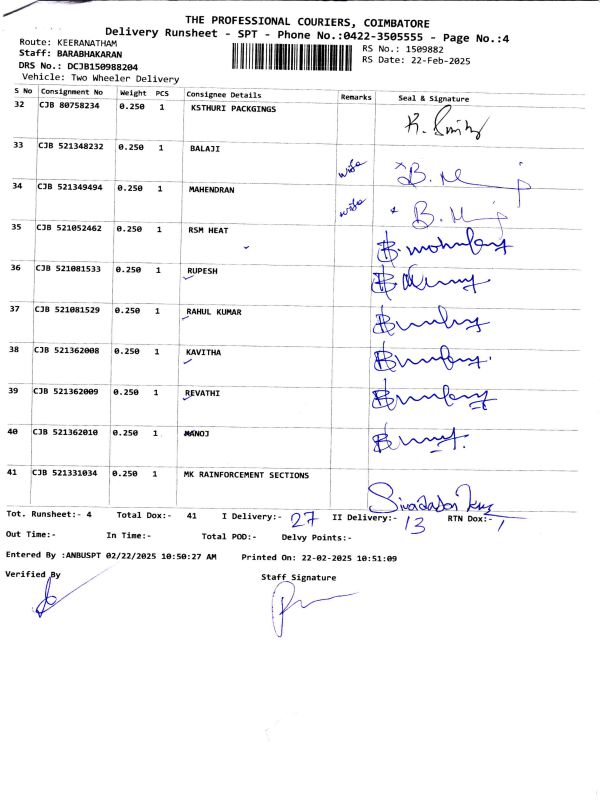 THE PROFESSIONAL COURIERS, COIMBATORE
Delivery Runsheet - SPT - Phone No.:0422-3505555 - Page No.:4
Route: KEERANATHAM RS No.: 1509882
Staff: BARABHAKARAN RS Date: 22-Feb-2025
DRS No.: DCJB150988204
Vehicle: Two Wheeler Delivery
S No Consignment No Weight PCS Consignee Details Remarks Seal & Signature
32 CJB 80758234 0.250 1 KSTHURI PACKGINGS
33 CJB 521348232 0.250 1 BALAJI wife
34 CJB 521349494 0.250 1 MAHENDRAN wife
35 CJB 521052462 0.250 1 RSM HEAT
36 CJB 521081533 0.250 1 RUPESH
37 CJB 521081529 0.250 1 RAHUL KUMAR
38 CJB 521362008 0.250 1 KAVITHA
39 CJB 521362009 0.250 1 REVATHI
40 CJB 521362010 0.250 1 MANOJ
41 CJB 521331034 0.250 1 MK RAINFORCEMENT SECTIONS
Tot. Runsheet:- 4 Total Dox:- 41 I Delivery:- 27 II Delivery:- 13 RTN Dox:- 1
Out Time:- In Time:- Total POD:- Delvy Points:-
Entered By :ANBUSPT 02/22/2025 10:50:27 AM Printed On: 22-02-2025 10:51:09
Verified By Staff Signature